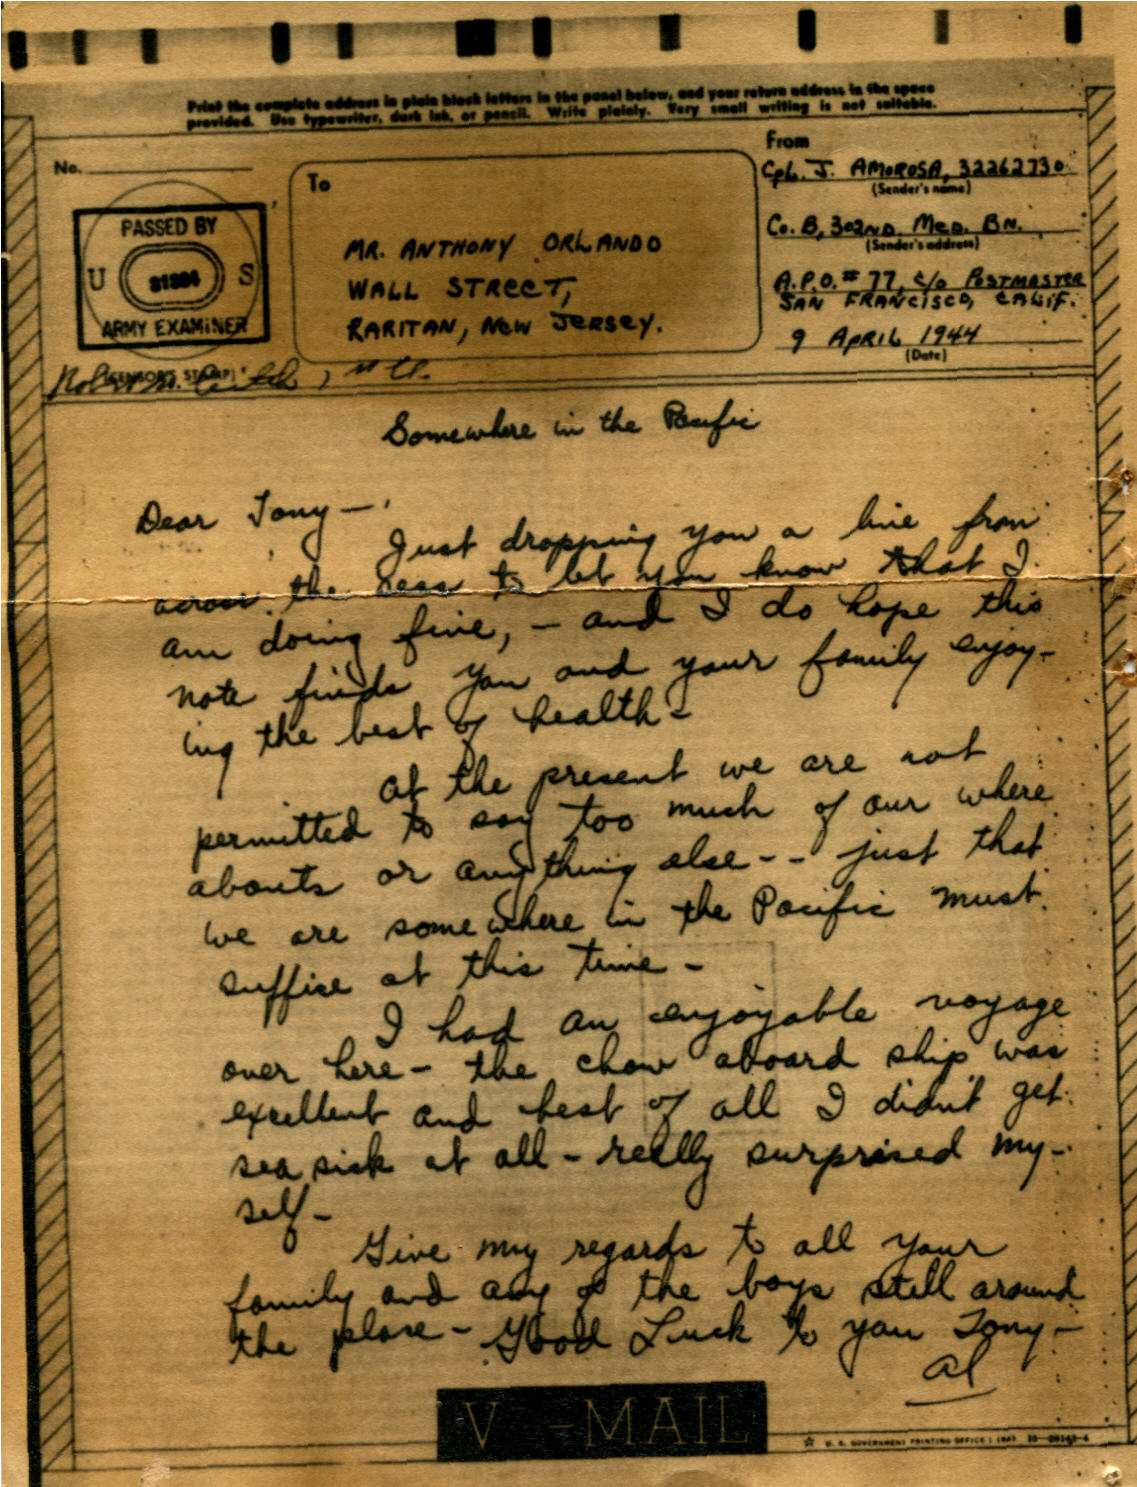 Print the complete address in plain block letters in the panel below, and your return address in the space
provided. Use typewriter, dark ink, or pencil. Write plainly. Very small writing is not suitable.
No.
PASSED BY
U S
ARMY EXAMINER
(CENSOR'S STAMP)
To
MR. ANTHONY ORLANDO
WALL STREET,
RARITAN, NEW JERSEY.
From
Cpl. J. AMOROSA, 32262730
(Sender's name)
Co. B, 302ND. MED. BN.
(Sender's address)
A.P.O. # 77, c/o POSTMASTER
SAN FRANCISCO, CALIF.
9 APRIL 1944
(Date)
Somewhere in the Pacific
Dear Tony—
Just dropping you a line from
across the seas to let you know that I
am doing fine, — and I do hope this
note finds you and your family enjoy-
ing the best of health -
At the present we are not
permitted to say too much of our where
abouts or anything else - - just that
we are somewhere in the Pacific must
suffice at this time -
I had an enjoyable voyage
over here - the chow aboard ship was
excellent and best of all I didn't get
sea sick at all - really surprised my-
self -
Give my regards to all your
family and any of the boys still around
the place - Good Luck to you Tony -
Al
V -MAIL
U. S. GOVERNMENT PRINTING OFFICE : 1943